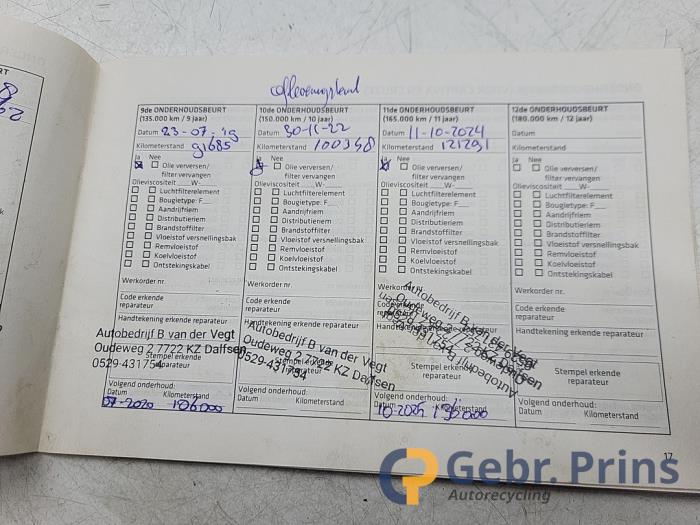 afleveringsbeurt
9de ONDERHOUDSBEURT
(135.000 km / 9 jaar)
Datum 23-07-'19
Kilometerstand 91685
Ja Nee
Olie verversen/
filter vervangen
Olieviscositeit W-
Luchtfilterelement
Bougietype: F
Aandrijfriem
Distributieriem
Brandstoffilter
Vloeistof versnellingsbak
Remvloeistof
Koelvloeistof
Ontstekingskabel
Werkorder nr.
Code erkende
reparateur
Handtekening erkende reparateur
Autobedrijf B van der Vegt
Oudeweg 2 7722 KZ Dalfsen
0529-431754
Stempel erkende
reparateur
Volgend onderhoud:
Datum Kilometerstand
07-2020 106000
10de ONDERHOUDSBEURT
(150.000 km / 10 jaar)
Datum 30-11-22
Kilometerstand 100348
Ja Nee
Olie verversen/
filter vervangen
Olieviscositeit W-
Luchtfilterelement
Bougietype: F
Aandrijfriem
Distributieriem
Brandstoffilter
Vloeistof versnellingsbak
Remvloeistof
Koelvloeistof
Ontstekingskabel
Werkorder nr.
Code erkende
reparateur
Handtekening erkende reparateur
Autobedrijf B van der Vegt
Oudeweg 2 7722 KZ Dalfsen
0529-431754
Stempel erkende
reparateur
Volgend onderhoud:
Datum Kilometerstand
11de ONDERHOUDSBEURT
(165.000 km / 11 jaar)
Datum 11-10-2024
Kilometerstand 121291
Ja Nee
Olie verversen/
filter vervangen
Olieviscositeit W-
Luchtfilterelement
Bougietype: F
Aandrijfriem
Distributieriem
Brandstoffilter
Vloeistof versnellingsbak
Remvloeistof
Koelvloeistof
Ontstekingskabel
Werkorder nr.
Code erkende
reparateur
Handtekening
Autobedrijf B van der Vegt
Oudeweg 2 7722 KZ Dalfsen
Stempel erkende
reparateur
Volgend onderhoud:
Datum Kilometerstand
10-2025
12de ONDERHOUDSBEURT
(180.000 km / 12 jaar)
Datum
Kilometerstand
Ja Nee
Olie verversen/
filter vervangen
Olieviscositeit W-
Luchtfilterelement
Bougietype: F
Aandrijfriem
Distributieriem
Brandstoffilter
Vloeistof versnellingsbak
Remvloeistof
Koelvloeistof
Ontstekingskabel
Werkorder nr.
Code erkende
reparateur
Handtekening erkende reparateur
Stempel erkende
reparateur
Volgend onderhoud:
Datum Kilometerstand
17
Gebr. Prins
Autorecycling